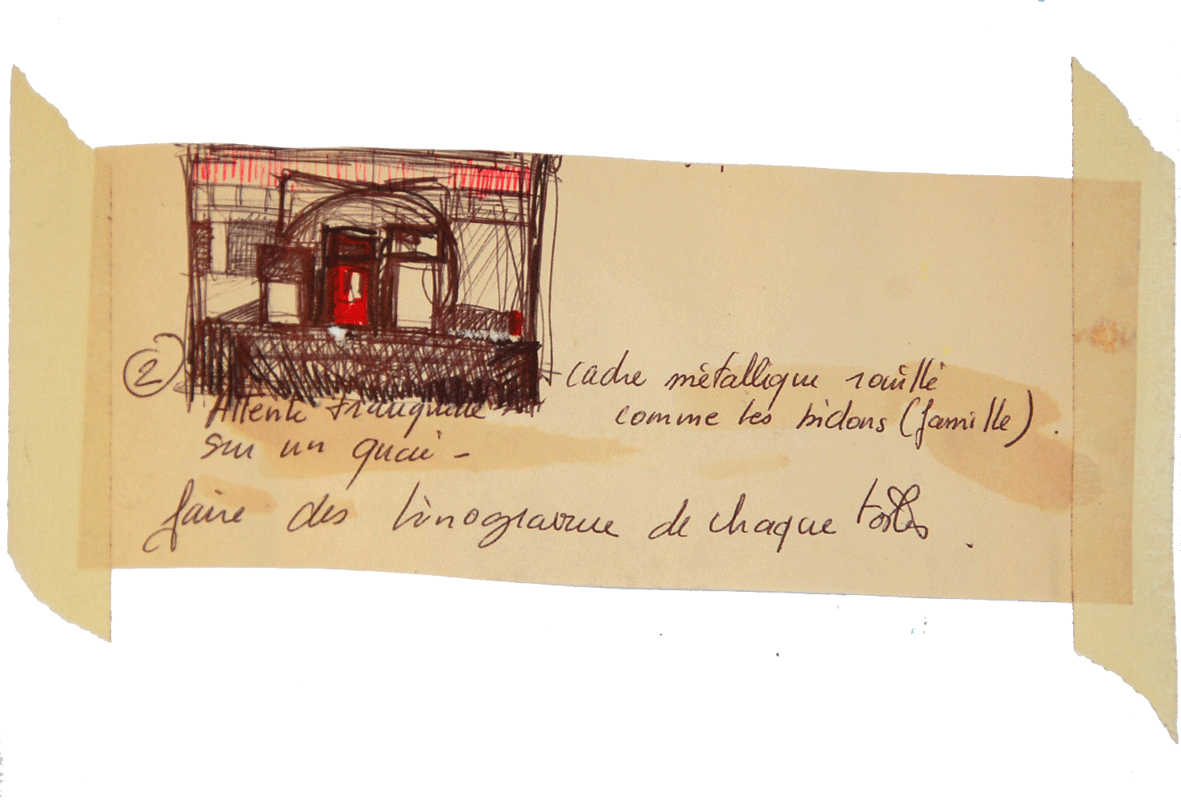 ②
Attente tranquille
sur un quai -
cadre métallique rouillé
comme les bidons (famille).
faire des linogravure de chaque toiles.